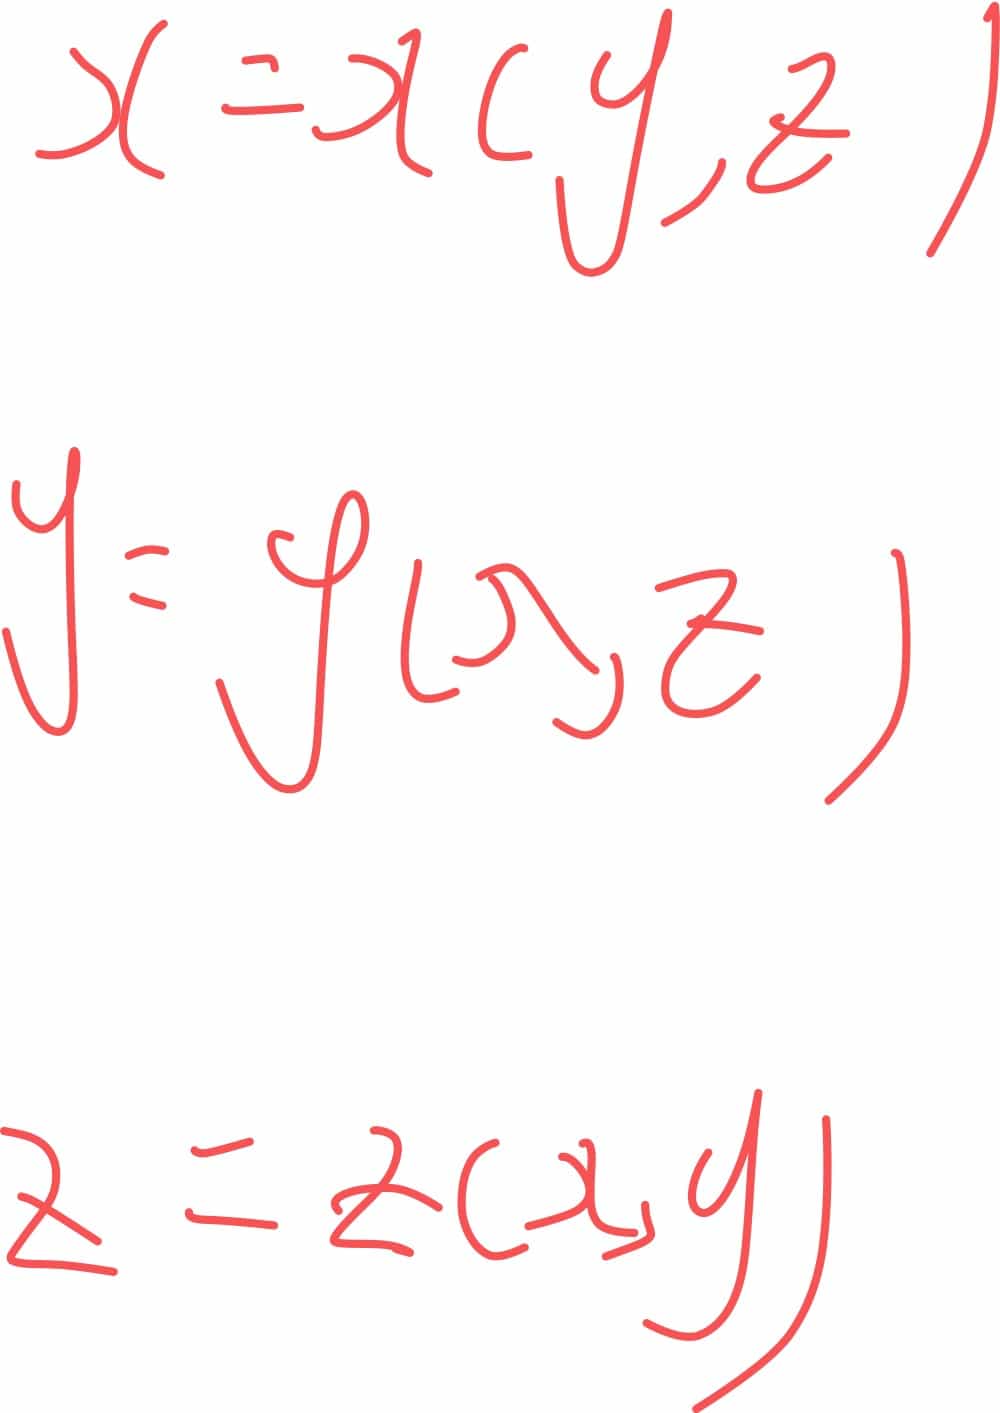 x = x(y, z)
y = y(x, z)
z = z(x, y)